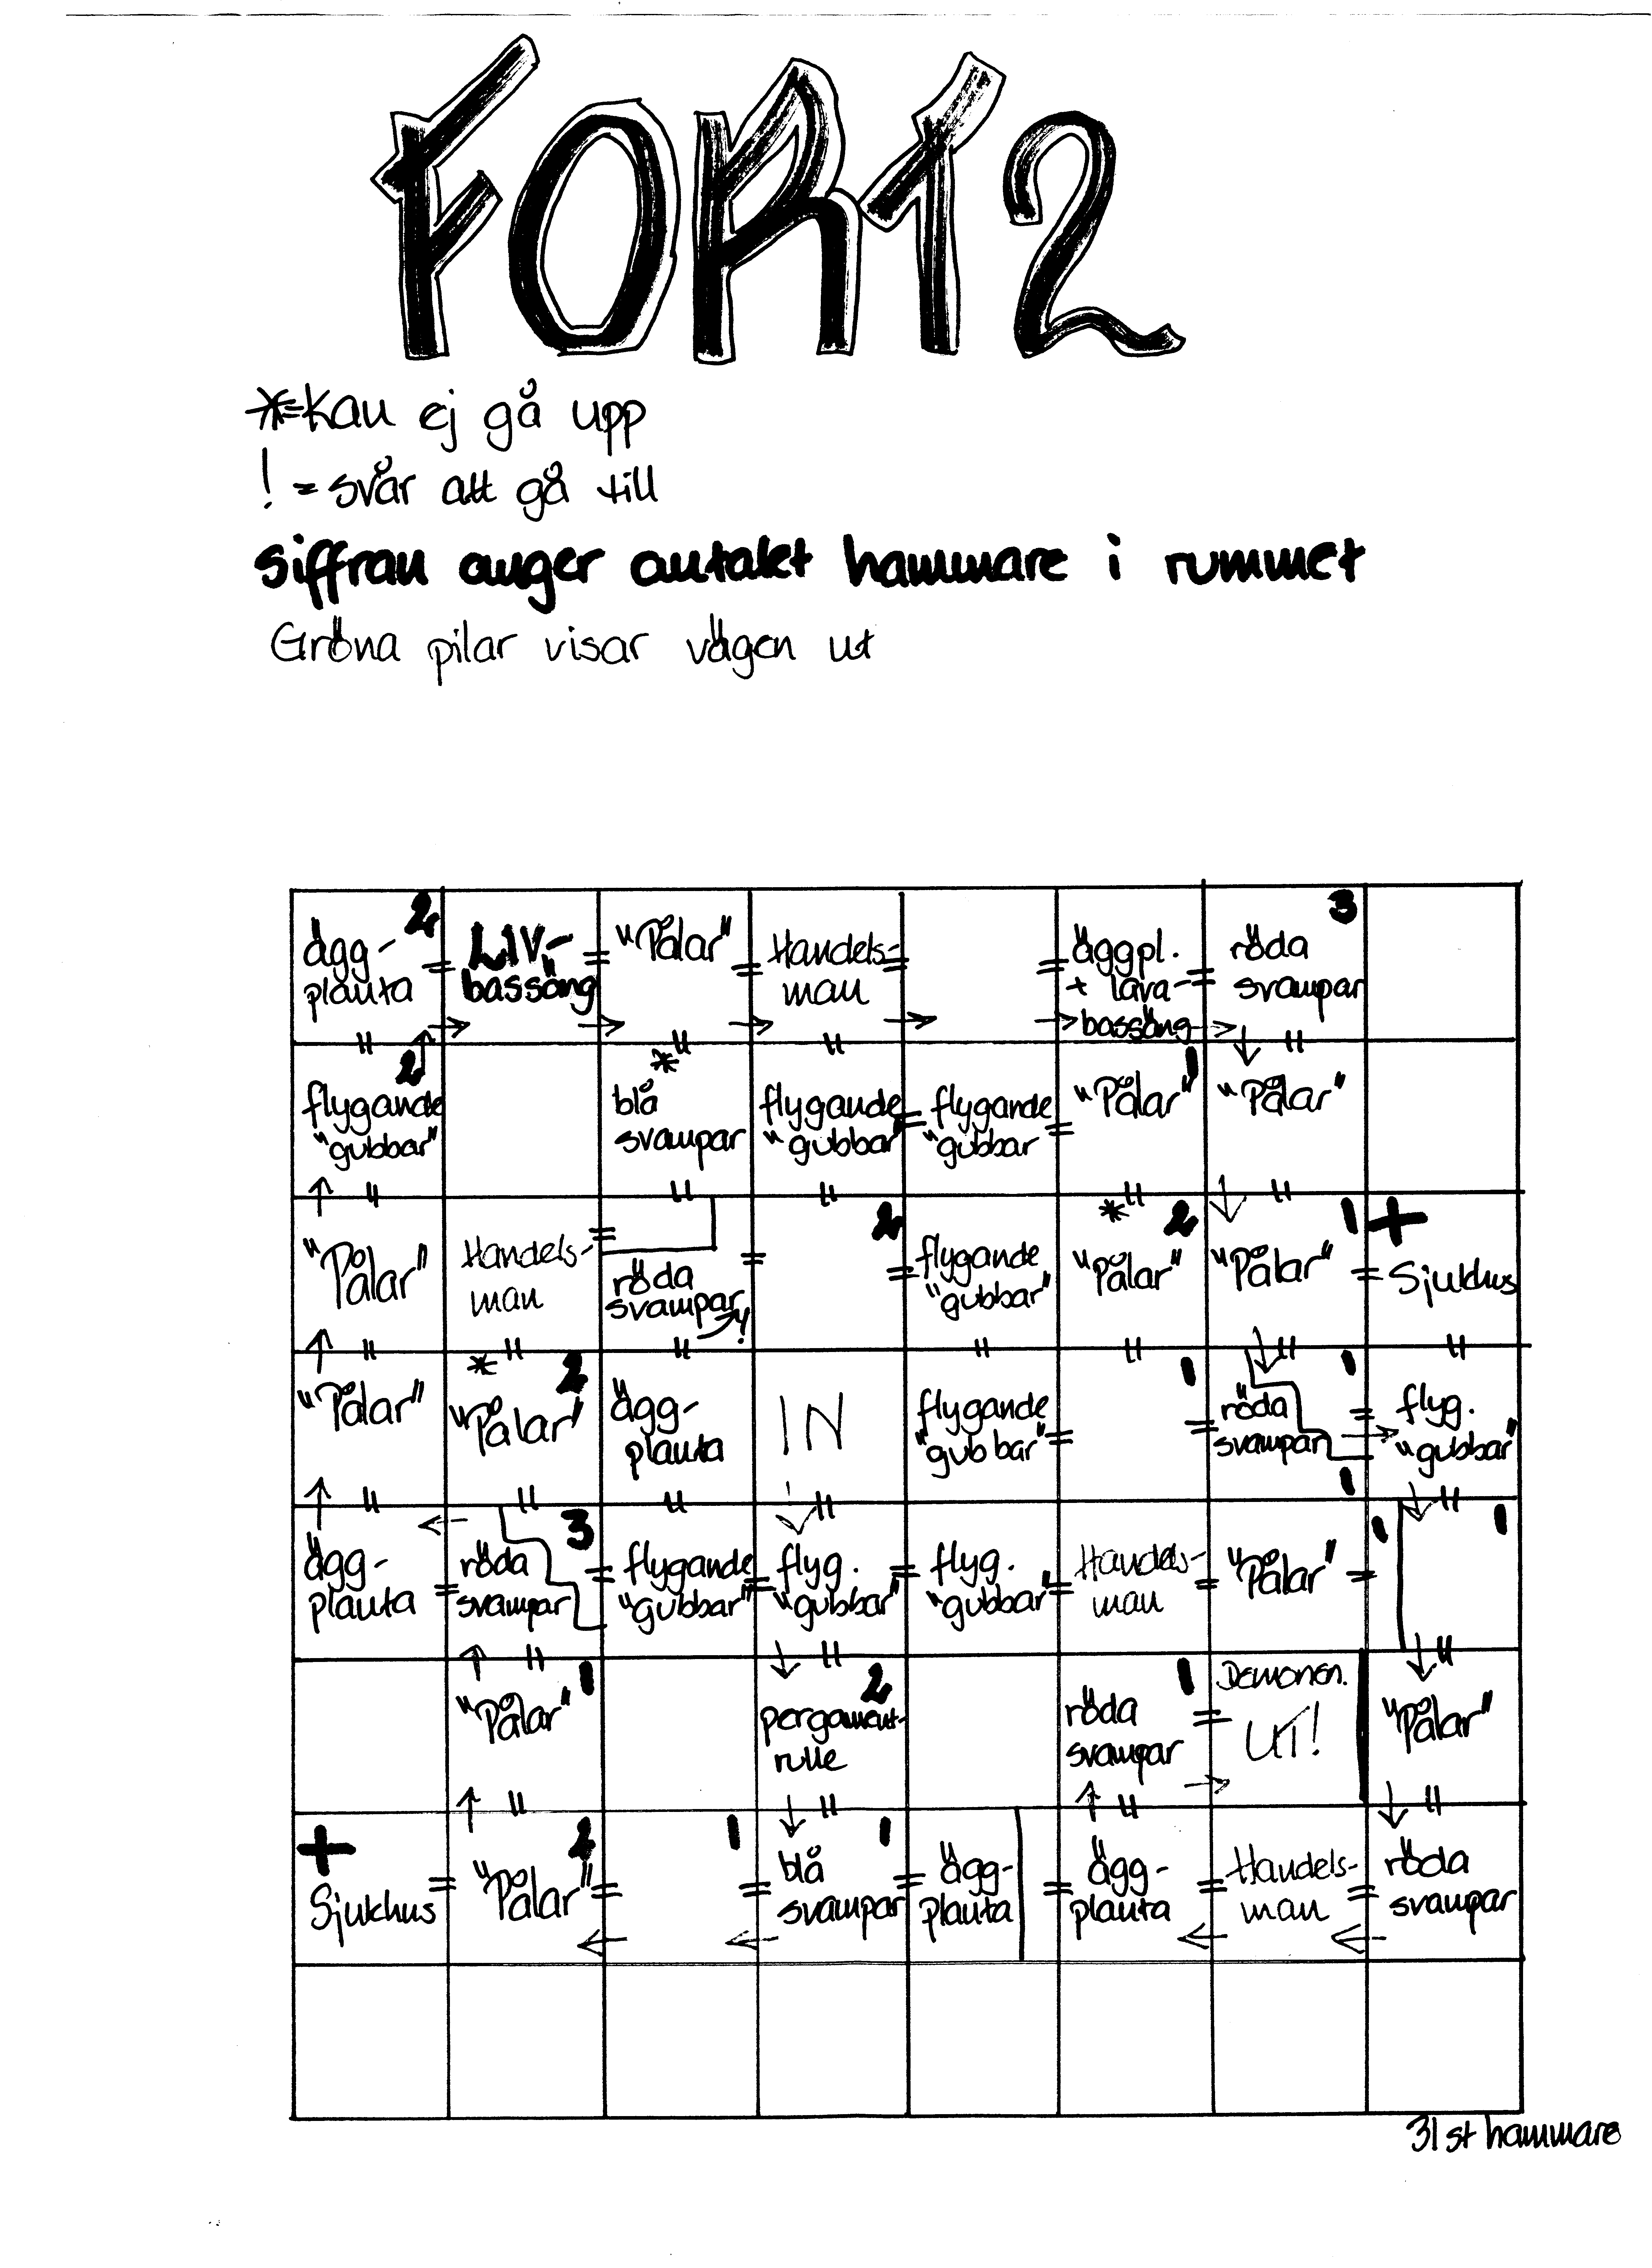 FORT 2
*=Kan ej gå upp
! = svår att gå till
siffran anger antalet hammare i rummet
Gröna pilar visar vägen ut
ägg-
planta
2
LIV-
bassäng
"Pålar"
Handels-
man
äggpl.
+ lava-
bassäng
röda
svampar
3
flygande
"gubbar"
2
*
blå
svampar
flygande
"gubbar"
flygande
"gubbar
"Pålar"
1
"Pålar"
"Pålar"
Handels-
man
röda
svampar
!
2
flygande
"gubbar"
*
2
"Pålar"
1
"Pålar"
+
Sjukhus
"Pålar"
*
2
"Pålar"
ägg-
planta
IN
flygande
"gubbar"
1
1
röda
svampar
1
flyg.
"gubbar"
ägg-
planta
röda
svampar
3
flygande
"gubbar"
flyg.
"gubbar"
flyg.
"gubbar"
Handels-
man
"Pålar"
1
1
"Pålar"
1
2
pergament-
rulle
röda
svampar
1
Demonen.
UT!
"Pålar"
+
Sjukhus
2
"Pålar"
1
blå
svampar
1
ägg-
planta
ägg-
planta
Handels-
man
röda
svampar
31 st hammare